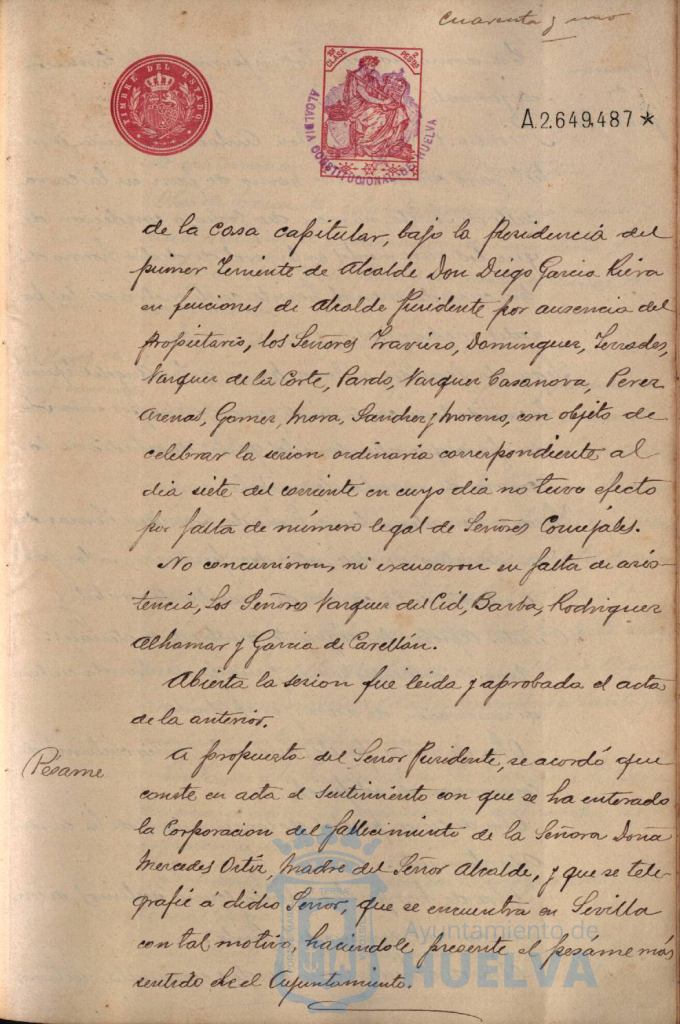 cuarenta y uno
TIMBRE DEL ESTADO
CLASE
PESTAS
ALCALDIA CONSTITUCIONAL DE HUELVA
A.2.649.487*
de la casa capitular, bajo la Presidencia del
primer Teniente de Alcalde Don Diego Garcia Riera
en funciones de Alcalde Presidente por ausencia del
propietario, los Señores Traviezo, Dominguez, Terrades,
Vazquez de la Corte, Pardo, Vazquez Casanova, Perez
Arenas, Gomez, Mora, Sanchez y Moreno, con objeto de
celebrar la sesion ordinaria correspondiente al
dia siete del corriente en cuyo dia no tuvo efecto
por falta de número legal de Señores Concejales.
No concurrieron, ni excusaron su falta de asis-
tencia, Los Señores Vazquez del Cid, Barba, Rodriguez
Alhamar y Garcia de Carellán.
Abierta la sesion fué leida y aprobada el acta
de la anterior.
Pésame
A propuesta del Señor Presidente, se acordó que
conste en acta el sentimiento con que se ha enterado
la Corporacion del fallecimiento de la Señora Doña
Mercedes Ortiz, Madre del Señor Alcalde, y que se tele-
grafie á dicho Señor, que se encuentra en Sevilla
con tal motivo, haciendole presente el pesáme más
sentido de el Ayuntamiento.
Ayuntamiento de
HUELVA